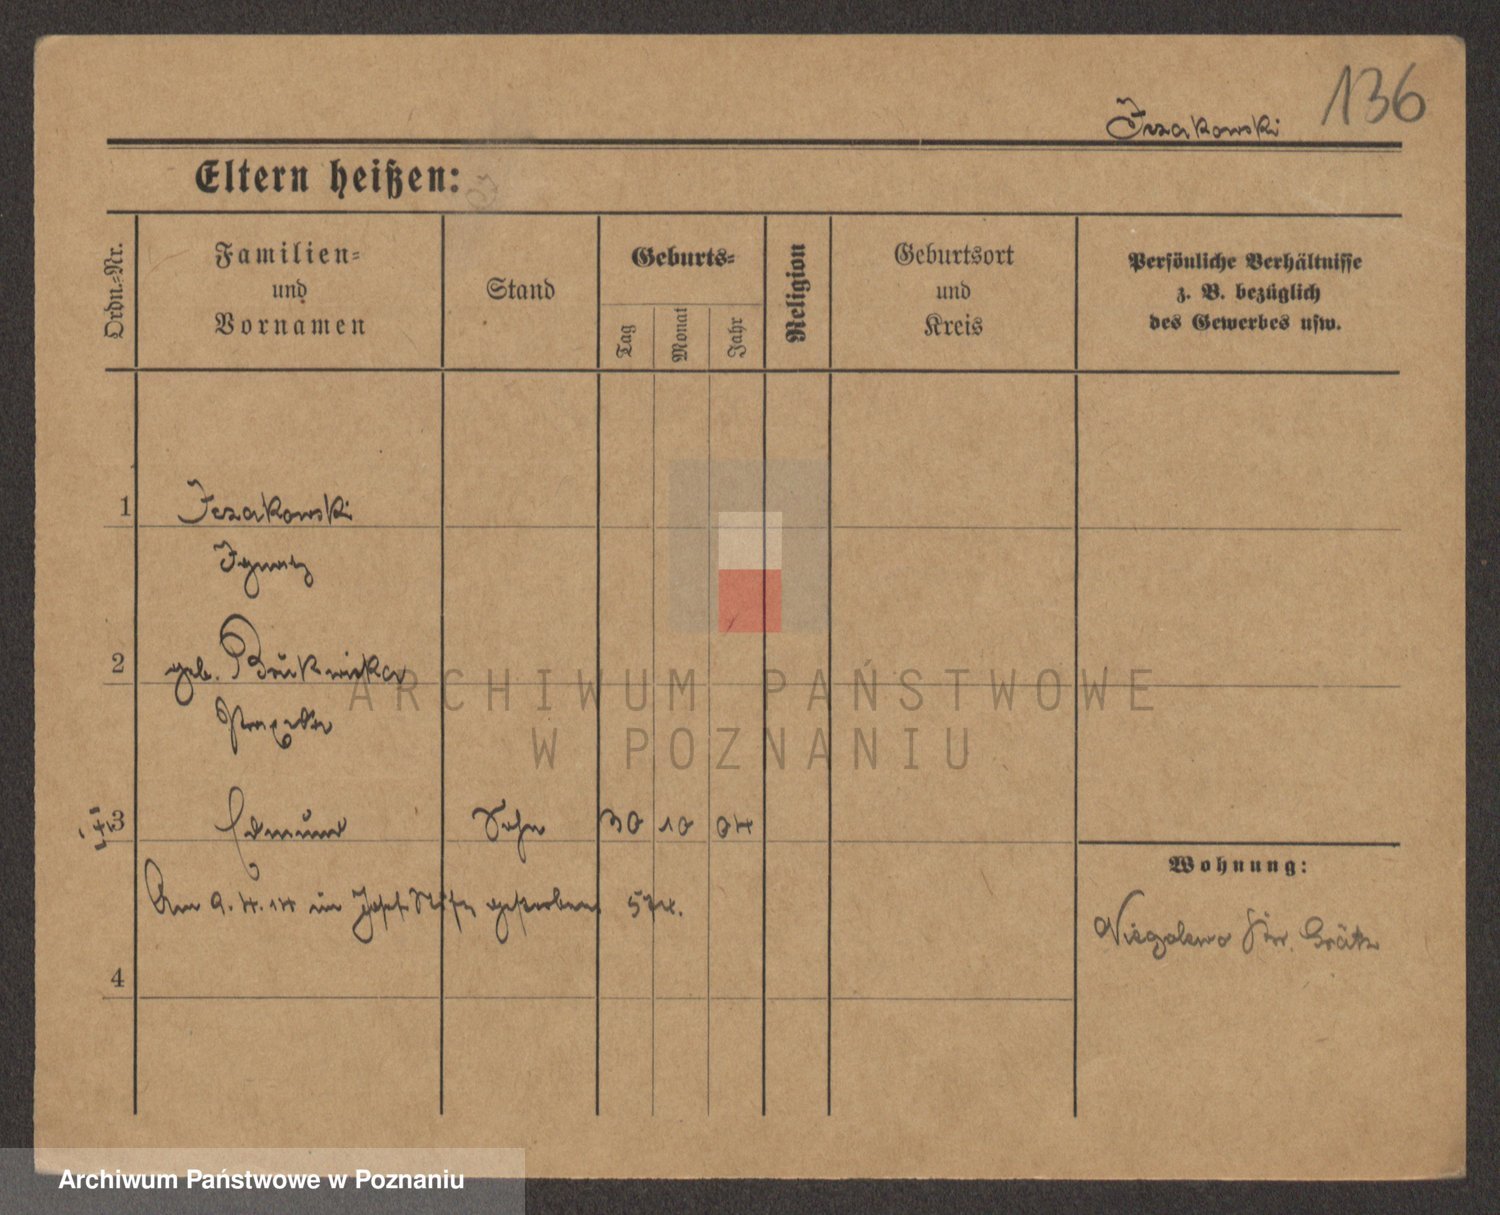 136
Jezakowski
Eltern heißen:
Ordn.-Nr.
Familien-
und
Vornamen
Stand
Geburts-
Tag
Monat
Jahr
Religion
Geburtsort
und
Kreis
Persönliche Verhältnisse
z. B. bezüglich
des Gewerbes usw.
1
Jezakowski
Ignatz
2
geb.
3
Edmund
Sohn
30
10
04
Am 9. 4. 14 im Josef Stift gestorben
4
Wohnung:
Niegolewo Kr. Grätz
ARCHIWUM PAŃSTWOWE
W POZNANIU
Archiwum Państwowe w Poznaniu